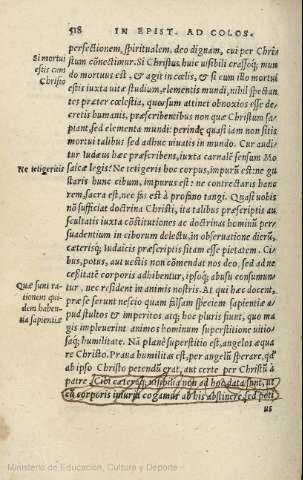 518 IN EPIST. AD COLOS.
perfectionem, spiritualem, deo dignam, cui per Chri
stum cōnectimur. Si Christus huic uisibili crassoq; mun
do mortuus est, & agit in cœlis, & si cum illo mortui
estis iuxta uitæ studium, elementis mundi, nihil spectan
tes præter cœlestia, quorsum attinet obnoxios esse de
cretis humanis, præscribentibus non quæ Christum sa
piant, sed elementa mundi: perinde quasi iam non sitis
mortui talibus sed adhuc uiuatis in mundo. Cur audiā
tur Iudæus hæc præscribens, iuxta carnalē sensum Mo
saicæ legis? Ne tetigeris hoc corpus, impurū est: ne gu
staris hunc cibum, impurus est: ne contrectaris hanc
rem, sacra est, nec fas est à profano tangi. Quasi uobis
nō sufficiat doctrina Christi, ita talibus præscriptis au
scultatis iuxta cōstitutiones ac doctrinas hominū per
suadentium in ciborum delectu, in obseruatione dierū,
cæterisq; Iudaicis præscriptis sitam esse pietatem. Ci
bus, potus, aut uestis non cōmendat nos deo, sed ad ne
cessitatē corporis adhibentur, ipsoq; abusu consumun
tur, nec resident in animis nostris. At qui hæc docent,
præ se ferunt nescio quam falsam speciem sapientiæ a-
pud stultos & imperitos atq; hoc pluris fiunt, quo ma
gis impleuerint animos hominum superstitione uitio-
saq; humilitate. Nā planè superstitio est, angelos æqua
re Christo. Praua humilitas est, per angelū sperare, qđ
ab ipso Christo petendū erat, aut certe per Christū à
patre. Cibi cæteraq; uisibilia non ad hoc data sunt, ut
cū corporis iniuria cogamur ab his abstinere, sed poti
us
Si mortui
estis cum
Christo
Ne tetigeritis
Quæ sunt ra-
tionem qui-
dem haben-
tia sapientiæ
Ministerio de Educación, Cultura y Deporte